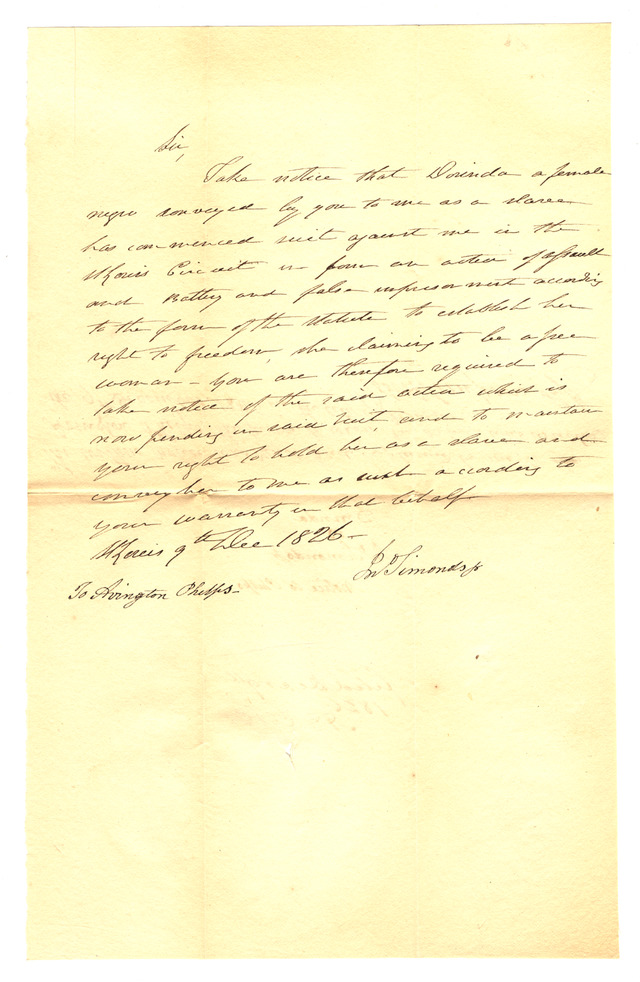 Sir,
Take notice that Dorinda a female
negro conveyed by you to me as a slave
has commenced suit against me in the
St Louis Circuit in form an action of assault
and Battery and false imprisonment according
to the form of the statute to establish her
right to freedom, she claiming to be a free
woman – You are therefore required to
take notice of the said action which is
now pending in said Court, and to maintain
your right to hold her as a slave and
convey her to me as such according to
your warranty in that behalf
St Louis 9th Dec 1826 –
Jno Simonds jr
To Avington Phelps –